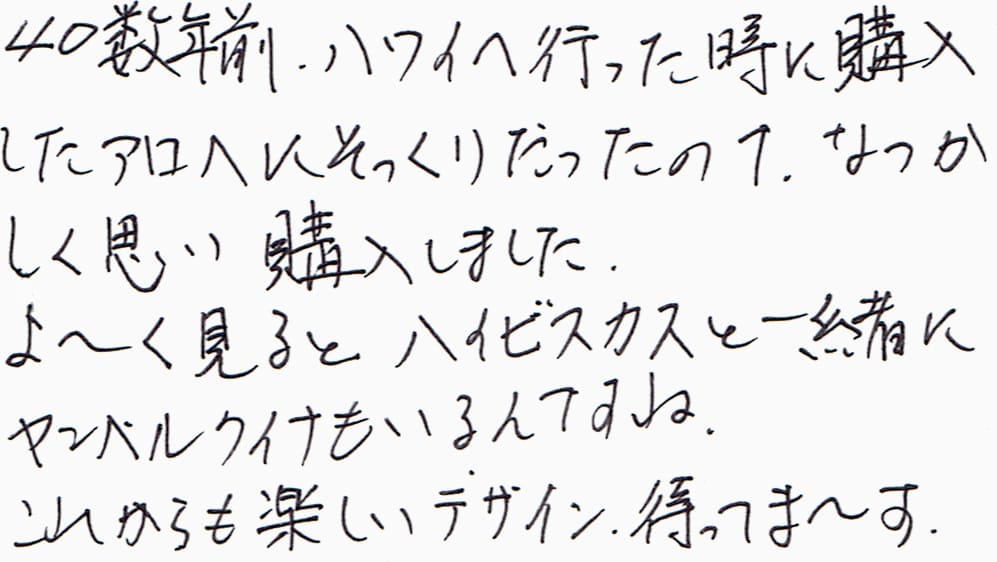 40数年前.ハワイへ行った時に購入
したアロハにそっくりだったので.なつか
しく思い 購入しました.
よ〜く見ると ハイビスカスと一緒に
ヤンバルクイナもいるんですね.
これからも楽しいデザイン.待ってま〜す.